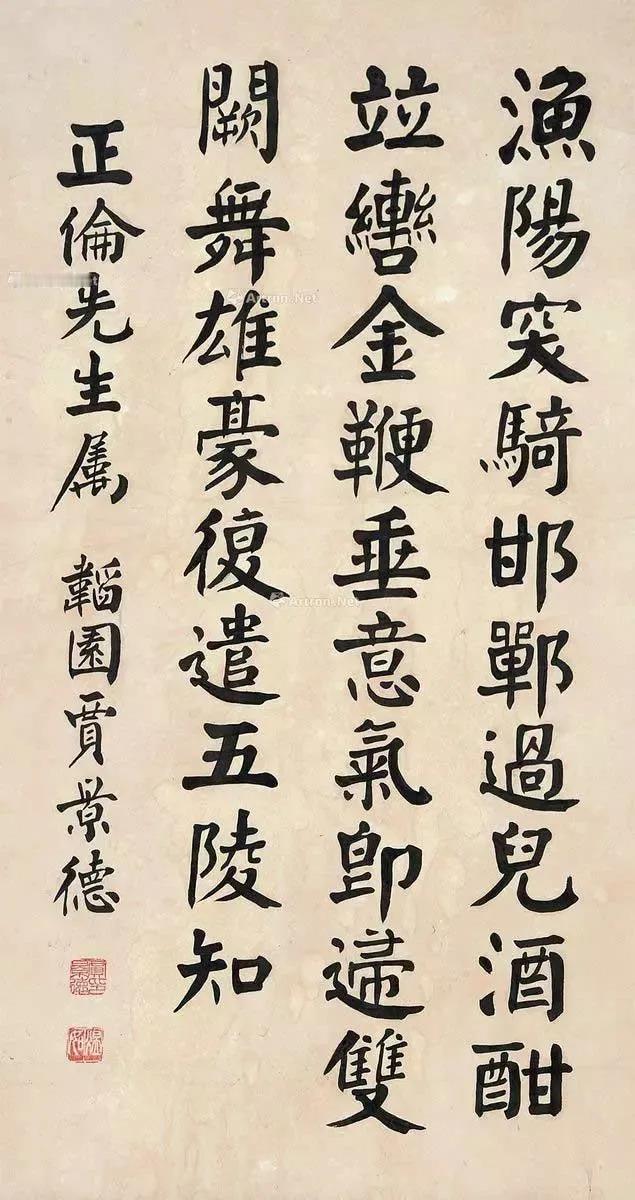 漁陽突騎邯鄲過兒酒酣
竝轡金鞭垂意氣卽歸雙
闕舞雄豪復遣五陵知
正倫先生屬 韜園賈景德
Artron.Net
Artron.Net